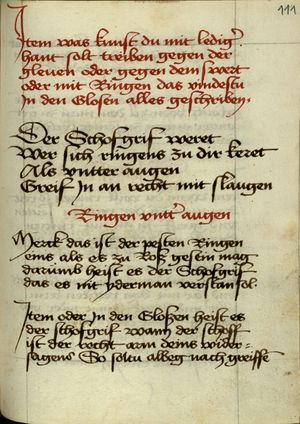 111
Item was kunst du mit ledig̉
hant solt treiben gegen der
gleuen oder gegen dem swert
oder mit Ringen das vindestu
in den Glosen alles geschriben
Der Schofgrif weret
Wer sich ringens zu dir keret
Als vntter augen
Greif In an recht mit slaugen
Ringen vntt̉ augen
Merck das ist der pesten Ringen
eins als es zu Roß gesein mag
darumb heist es der Schofgrif
das es nit yderman verstan sol
Item oder In den Gloßen heist es
der schofgrif wann der schoff
ist der recht arm deins wider=
sagens So soltu albeg nach greiffe